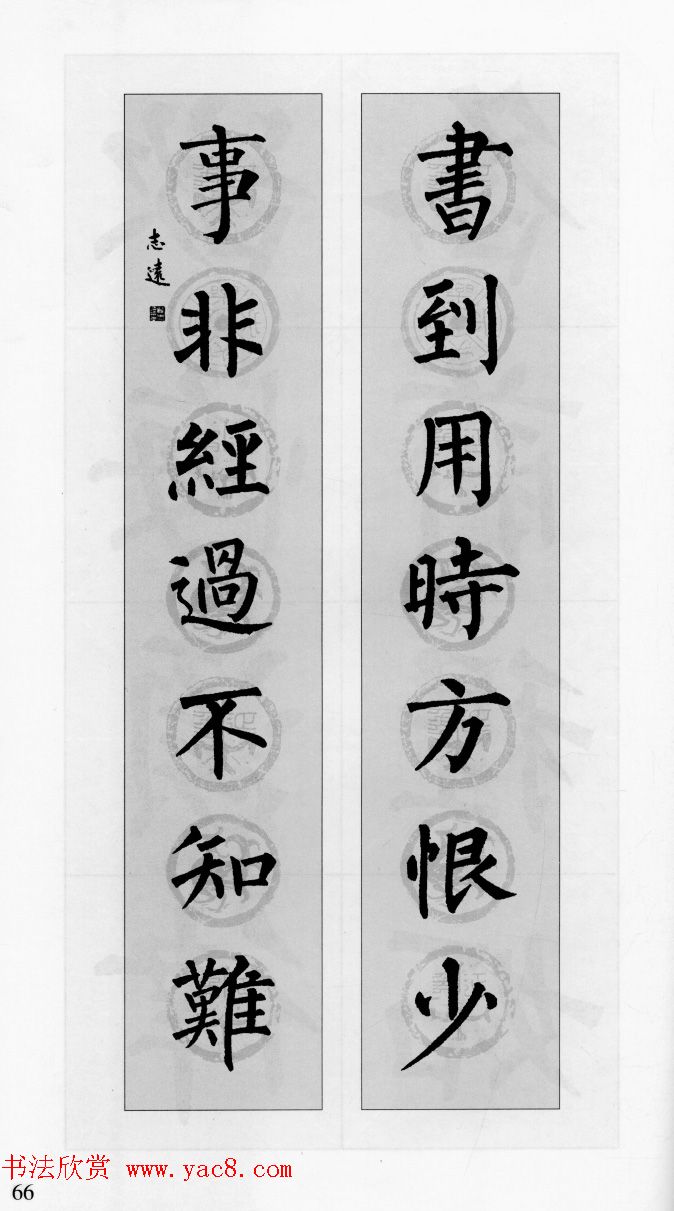 書到用時方恨少
事非經過不知難
志遠
书法欣赏 www.yac8.com
66